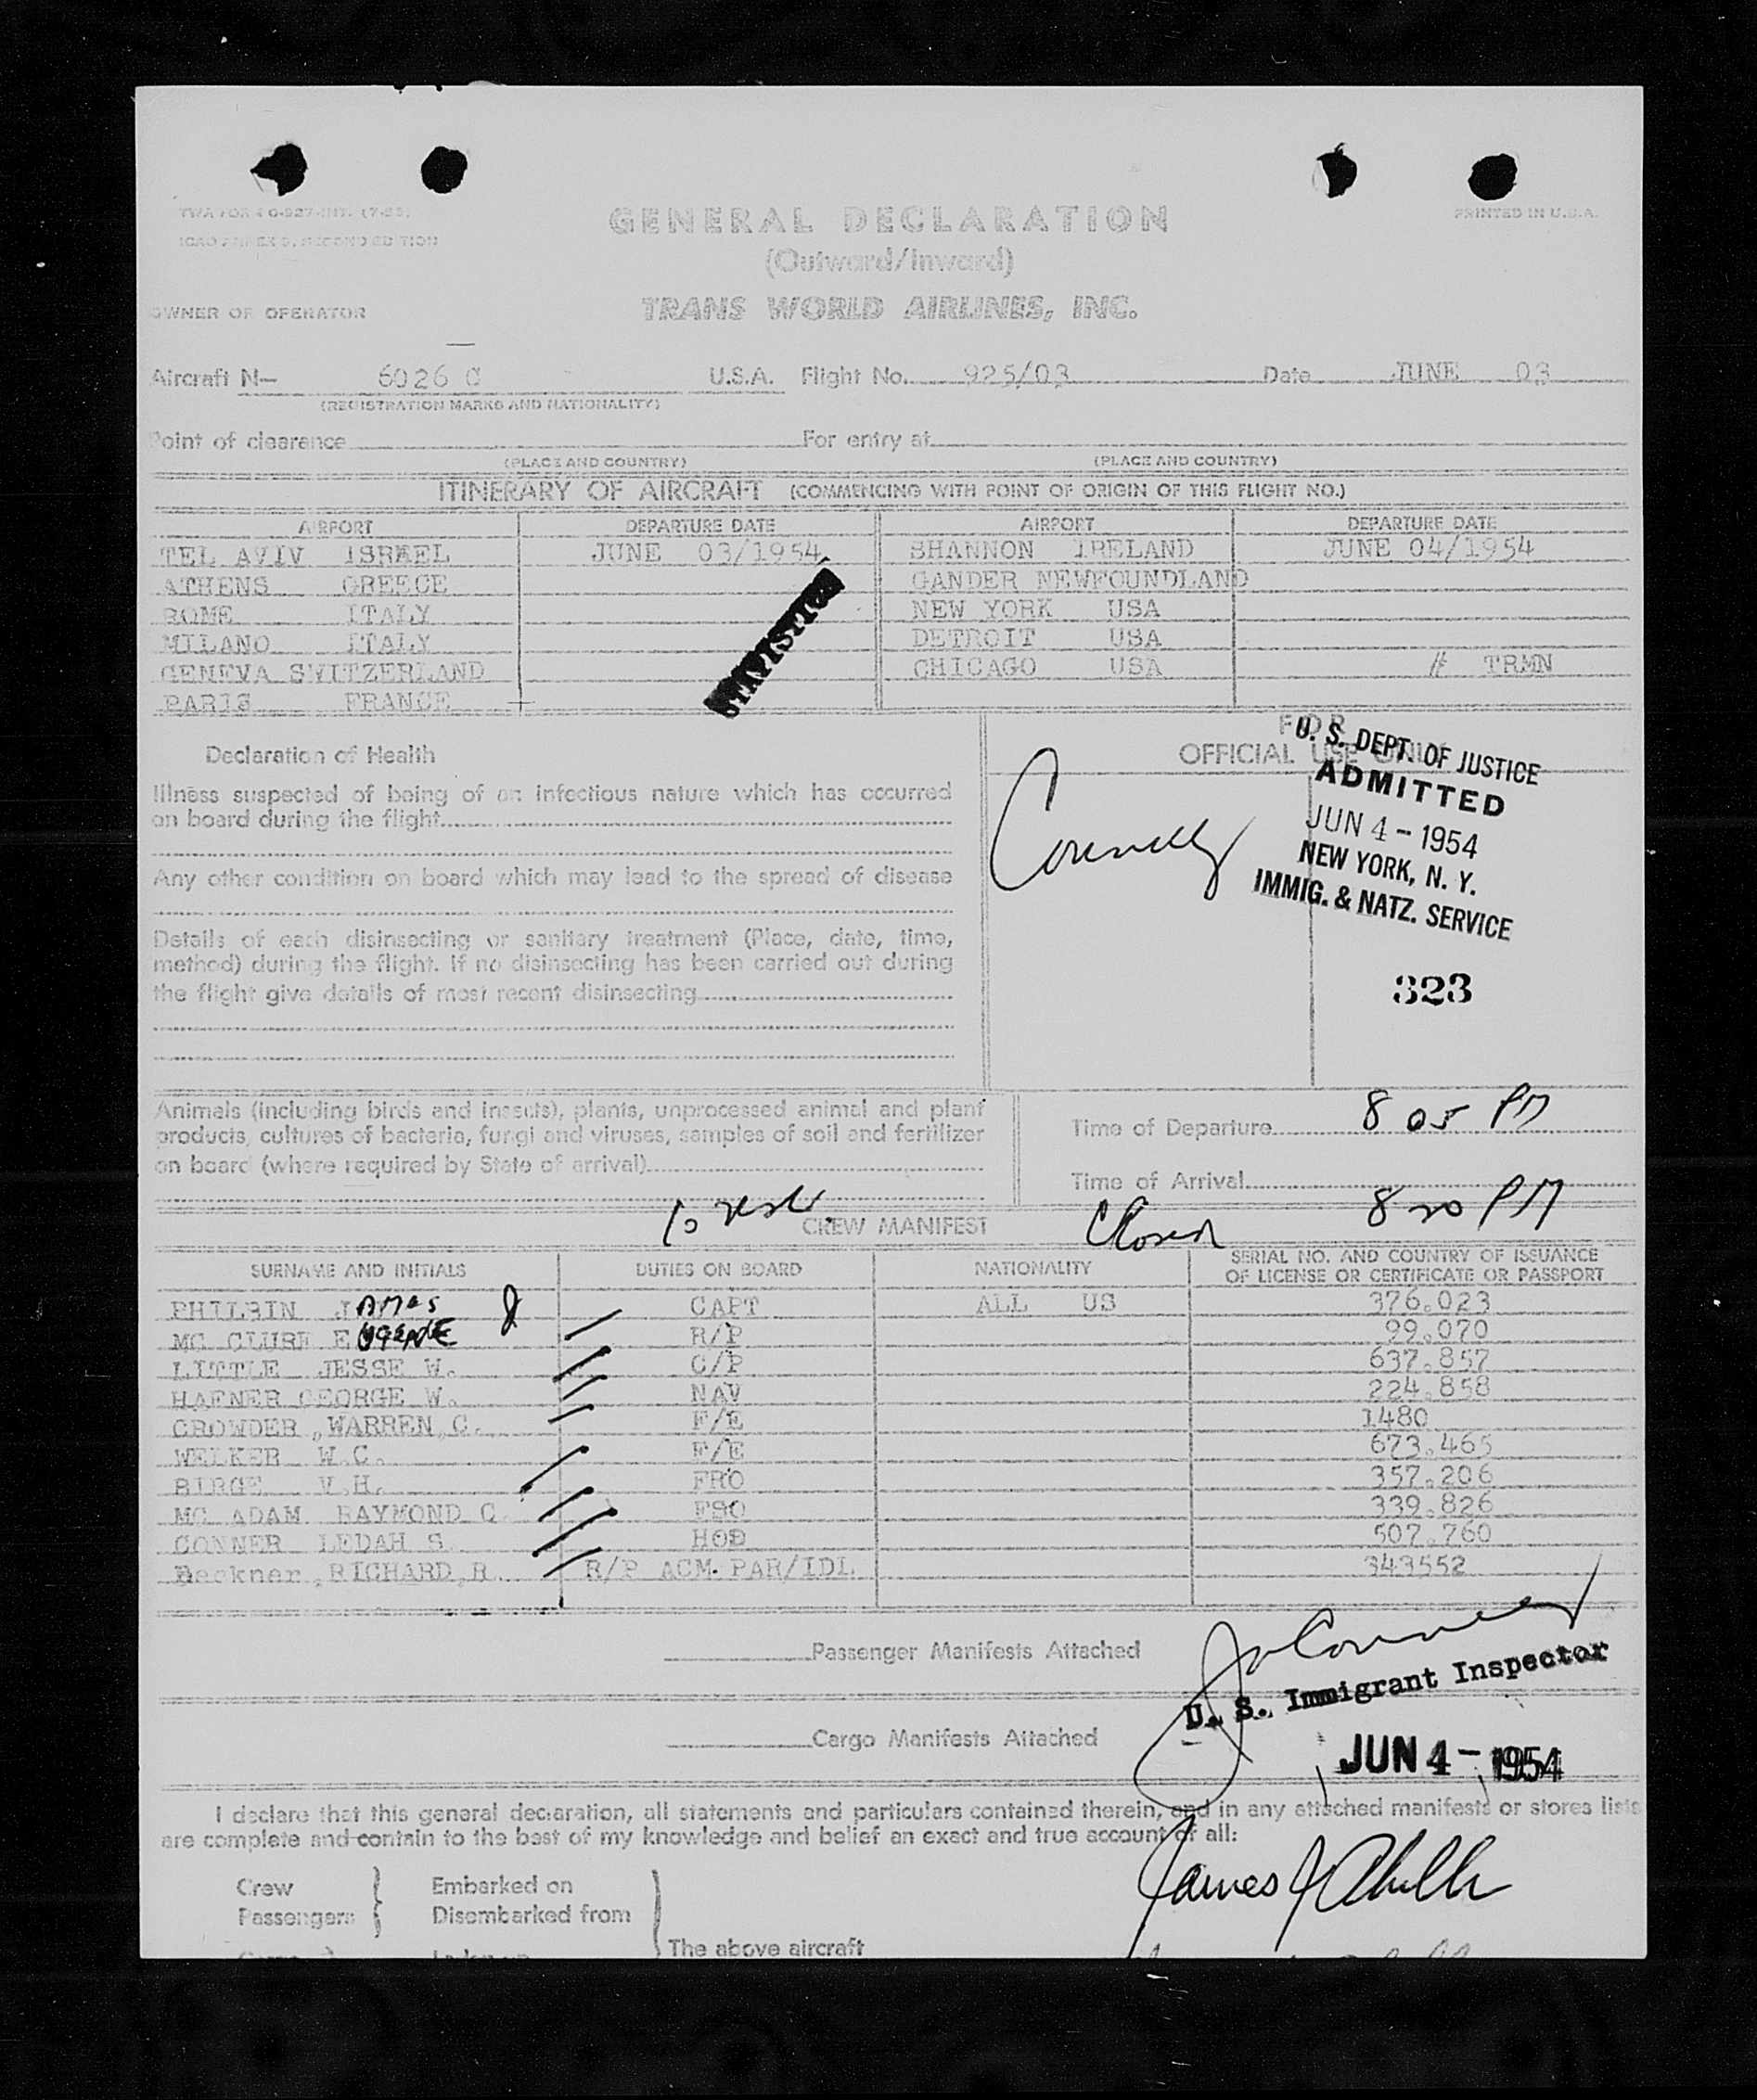 TWA FORM 0-927-INT. (7-53)
ICAO ANNEX 9, SECOND EDITION
PRINTED IN U.S.A.
GENERAL DECLARATION
(Outward/Inward)
OWNER OR OPERATOR
TRANS WORLD AIRLINES, INC.
Aircraft N— 6026 C U.S.A. Flight No. 925/03 Date JUNE 03
(REGISTRATION MARKS AND NATIONALITY)
Point of clearance For entry at
(PLACE AND COUNTRY) (PLACE AND COUNTRY)
ITINERARY OF AIRCRAFT (COMMENCING WITH POINT OF ORIGIN OF THIS FLIGHT NO.)
AIRPORT DEPARTURE DATE AIRPORT DEPARTURE DATE
TEL AVIV ISRAEL JUNE 03/1954 SHANNON IRELAND JUNE 04/1954
ATHENS GREECE GANDER NEWFOUNDLAND
ROME ITALY NEW YORK USA
MILANO ITALY DETROIT USA
GENEVA SWITZERLAND CHICAGO USA # TRMN
PARIS FRANCE
STATISTICS
Declaration of Health
FOR
OFFICIAL USE ONLY
U. S. DEPT. OF JUSTICE
ADMITTED
JUN 4 - 1954
NEW YORK, N. Y.
IMMIG. & NATZ. SERVICE
Connelly
323
Illness suspected of being of an infectious nature which has occurred
on board during the flight
Any other condition on board which may lead to the spread of disease
Details of each disinsecting or sanitary treatment (Place, date, time,
method) during the flight. If no disinsecting has been carried out during
the flight give details of most recent disinsecting
Animals (including birds and insects), plants, unprocessed animal and plant
products, cultures of bacteria, fungi and viruses, samples of soil and fertilizer
on board (where required by State of arrival)
Time of Departure 8 05 PM
Time of Arrival
Closed 8 20 PM
CREW MANIFEST
SURNAME AND INITIALS DUTIES ON BOARD NATIONALITY SERIAL NO. AND COUNTRY OF ISSUANCE
OF LICENSE OR CERTIFICATE OR PASSPORT
PHILBIN JAMES CAPT ALL US 376.023
MC CLURE EUGENE R/P 99.070
LITTLE JESSE W. C/P 637.857
HAFNER GEORGE W. NAV 224.858
CROWDER, WARREN, C. F/E 1480
WELKER W.C. F/E 673.465
BIRGE V.H. FRO 357.206
MC ADAM RAYMOND C FSO 339.826
CONNER LEDAH S. HOS 507.760
Beckner, RICHARD, R. R/P ACM. PAR/IDL 343552
Passenger Manifests Attached
U. S. Immigrant Inspector
Cargo Manifests Attached
JUN 4 - 1954
I declare that this general declaration, all statements and particulars contained therein, and in any attached manifests or stores lists
are complete and contain to the best of my knowledge and belief an exact and true account of all:
Crew Embarked on
Passengers Disembarked from
The above aircraft